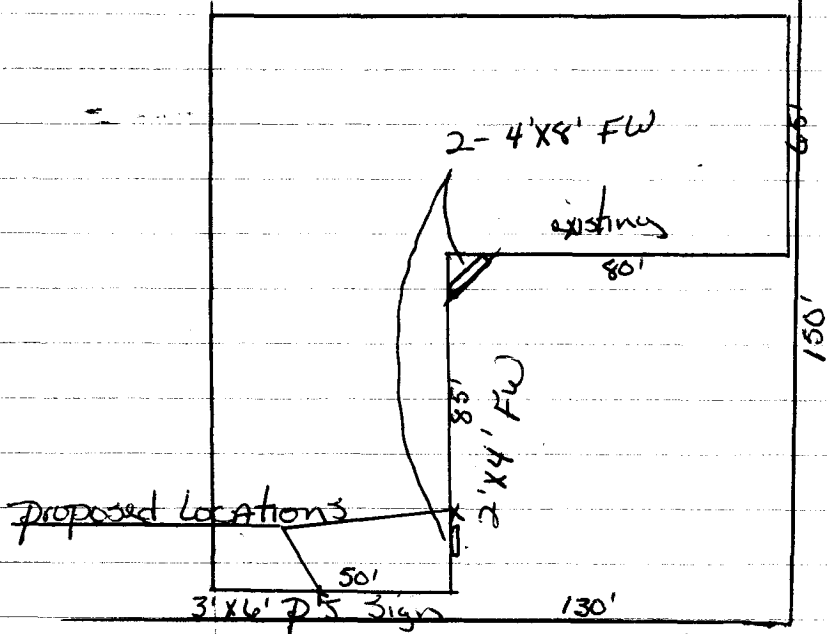 2- 4'X8' FW
65'
existing
80'
150'
85'
2'X4' FW
proposed Locations
50'
3'X6' PS Sign
130'